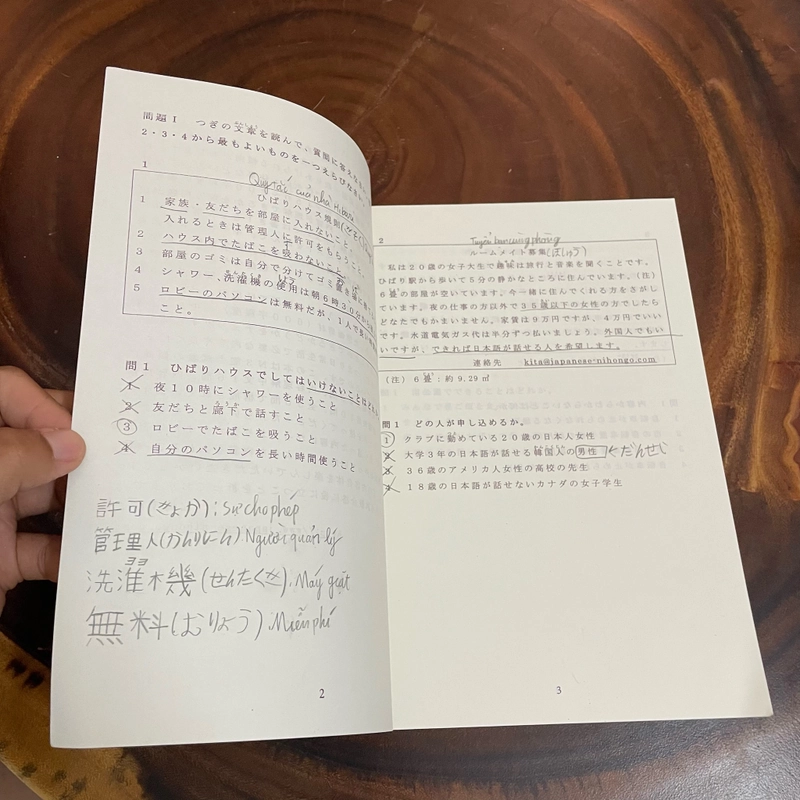 問題Ⅰ つぎの文章を読んで、質問に答えなさい。
2・3・4から最もよいものを一つえらびなさい。
1
Quy tắc của nhà Hibari
ひばりハウス規則(きそく)
1 家族・友だちを部屋に入れないこと。
入れるときは管理人に許可をもらうこと。
2 ハウス内でたばこを吸わないこと。
3 部屋のゴミは自分で分けてゴミ置き場
4 シャワー、洗濯機の使用は朝6時30分から
5 ロビーのパソコンは無料だが、1人で
こと。
問1 ひばりハウスでしてはいけないことは
1 夜10時にシャワーを使うこと
2 友だちと廊下で話すこと
3 ロビーでたばこを吸うこと
4 自分のパソコンを長い時間使うこと
許可(きょか): Sự cho phép
管理人(かんりにん) Người quản lý
洗濯機(せんたくき). Máy giặt
無料(むりょう): Miễn phí
2
2
Tuyển bạn cùng phòng
ルームメイト募集(ぼしゅう)
私は20歳の女子大生で趣味は旅行と音楽を聞くことです。
ひばり駅から歩いて5分の静かなところに住んでいます。(注)
6畳の部屋が空いています。今一緒に住んでくれる方をさがし
ています。夜の仕事の方以外で35歳以下の女性の方でしたら
どなたでもかまいません。家賃は9万円ですが、4万円でいい
です。水道電気ガス代は半分ずつ払いましょう。外国人でもい
いですが、できれば日本語が話せる人を希望します。
連絡先 kita@japanese-nihongo.com
(注) 6畳:約9.29㎡
問1 どの人が申し込めるか。
1 クラブに勤めている20歳の日本人女性
2 大学3年の日本語が話せる韓国人の男性 だんせい
3 36歳のアメリカ人女性の高校の先生
4 18歳の日本語が話せないカナダの女子学生
3